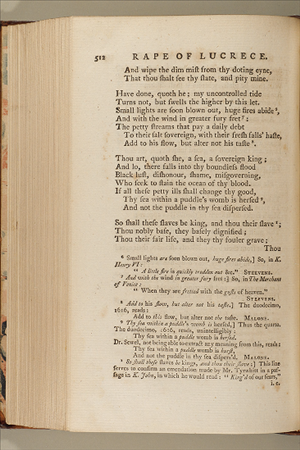 512 RAPE OF LUCRECE.
And wipe the dim mist from thy doting eyne,
That thou shalt see thy state, and pity mine.
Have done, quoth he; my uncontrolled tide
Turns not, but swells the higher by this let.
Small lights are soon blown out, huge fires abide⁶,
And with the wind in greater fury fret⁷:
The petty streams that pay a daily debt
To their salt sovereign, with their fresh falls' haste,
Add to his flow, but alter not his taste⁸.
Thou art, quoth she, a sea, a sovereign king;
And lo, there falls into thy boundless flood
Black lust, dishonour, shame, misgoverning,
Who seek to stain the ocean of thy blood.
If all these petty ills shall change thy good,
Thy sea within a puddle's womb is hersed⁹,
And not the puddle in thy sea dispersed.
So shall these slaves be king, and thou their slave¹;
Thou nobly base, they basely dignified;
Thou their fair life, and they thy fouler grave;
Thou
⁶ Small lights are soon blown out, huge fires abide,] So, in K.
Henry VI:
"A little fire is quickly trodden out &c." STEEVENS.
⁷ And with the wind in greater fury fret:] So, in The Merchant
of Venice:
"When they are fretted with the gusts of heaven."
STEEVENS.
⁸ Add to his flow, but alter not his taste.] The duodecimo,
1616, reads:
Add to this flow, but alter not the taste. MALONE.
⁹ Thy sea within a puddle's womb is hersed,] Thus the quarto.
The duodecimo, 1616, reads, unintelligibly:
Thy sea within a puddle womb is hersed.
Dr. Sewel, not being able to extract any meaning from this, reads:
Thy sea within a puddle womb is burst,
And not the puddle in thy sea dispers'd. MALONE.
¹ So shall these slaves be king, and thou their slave;] This line
serves to confirm an emendation made by Mr. Tyrwhitt in a pas-
sage in K. John, in which he would read: "King'd of our fears,"
i. e.